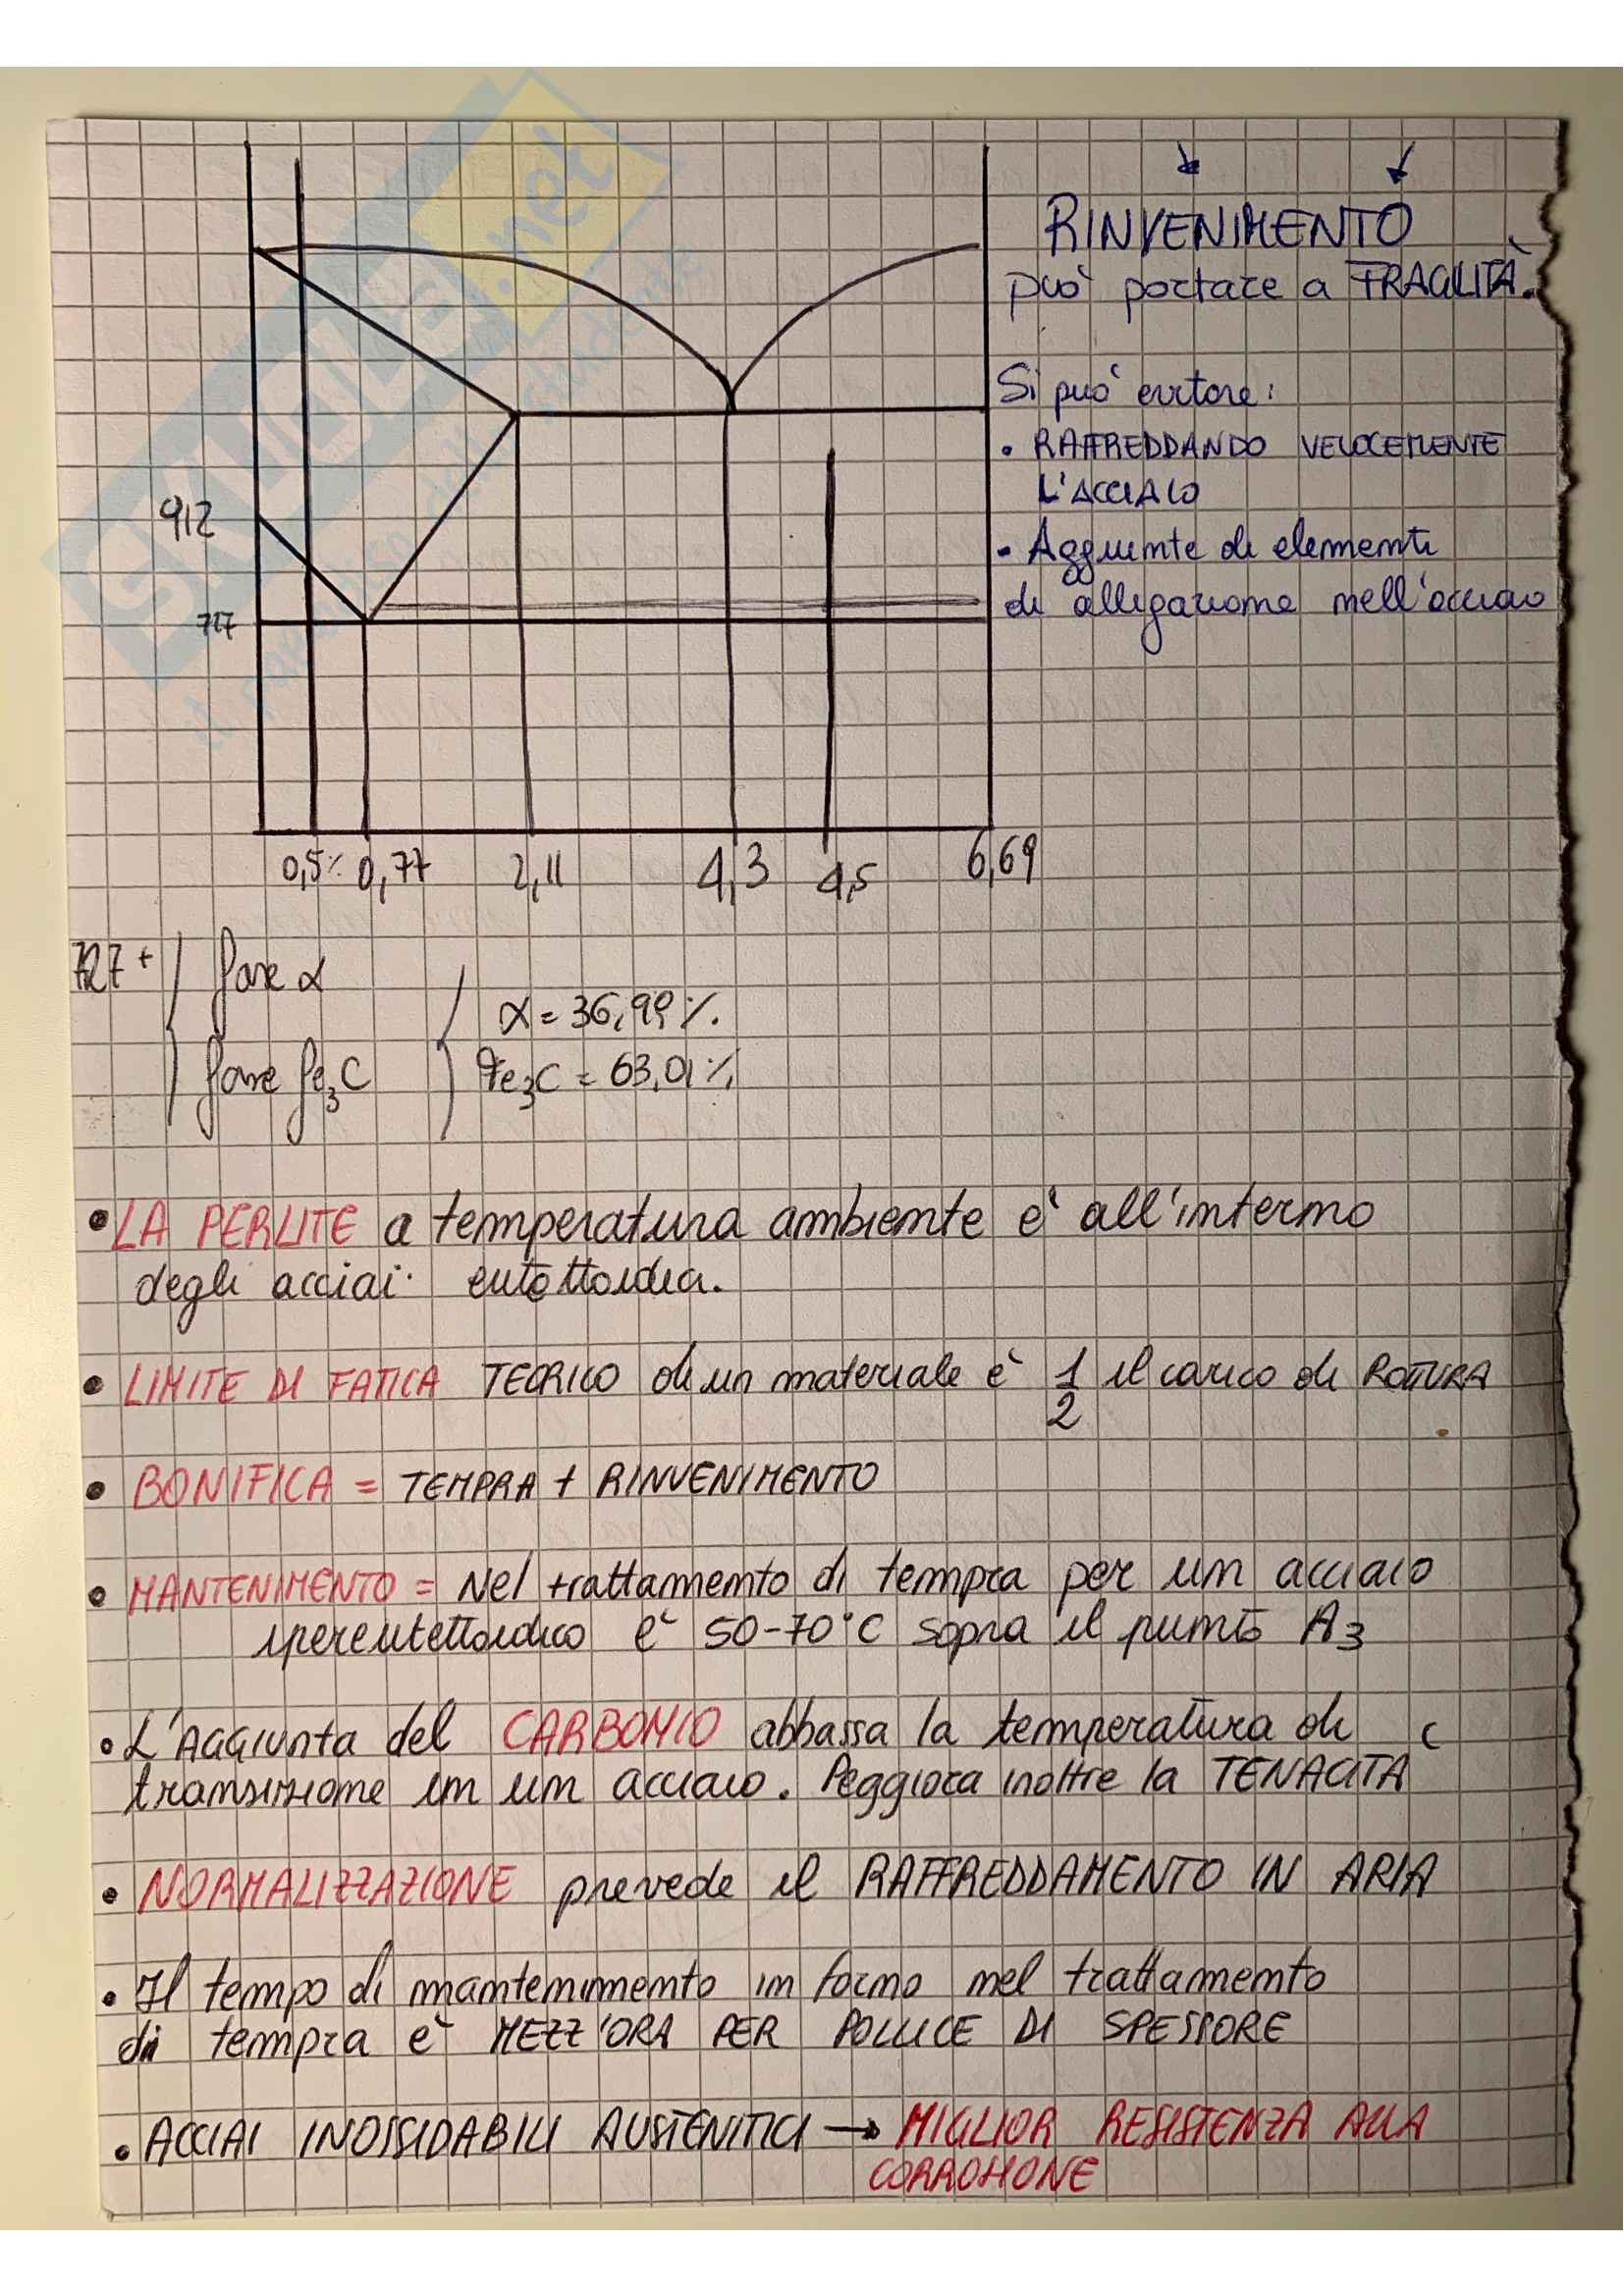 SKUOLA.net
il paradiso dello studente
RINVENIMENTO
può portare a FRAGILITÀ.
Si può evitare:
• RAFFREDDANDO VELOCEMENTE
L'ACCIAIO
• Aggiunte di elementi
di alligazione nell'acciaio
912
727
0,5% 0,77 2,11 4,3 4,5 6,69
727 +
fase α
fase fe3C
α = 36,99 %.
Fe3C = 63,01 %
• LA PERLITE a temperatura ambiente e' all'interno
degli acciai eutettoidici.
• LIMITE DI FATICA TEORICO di un materiale è 1/2 il carico di ROTTURA
• BONIFICA = TEMPRA + RINVENIMENTO
• MANTENIMENTO = Nel trattamento di tempra per un acciaio
ipereutettoidico è 50-70°C sopra il punto A3
• L'AGGIUNTA del CARBONIO abbassa la temperatura di c
transizione in un acciaio. Peggiora inoltre la TENACITA
• NORMALIZZAZIONE prevede il RAFFREDDAMENTO IN ARIA
• Il tempo di mantenimento in forno nel trattamento
di tempra e' MEZZ'ORA PER POLLICE DI SPESSORE
• ACCIAI INOSSIDABILI AUSTENITICI → MIGLIOR RESISTENZA ALLA
CORROSIONE